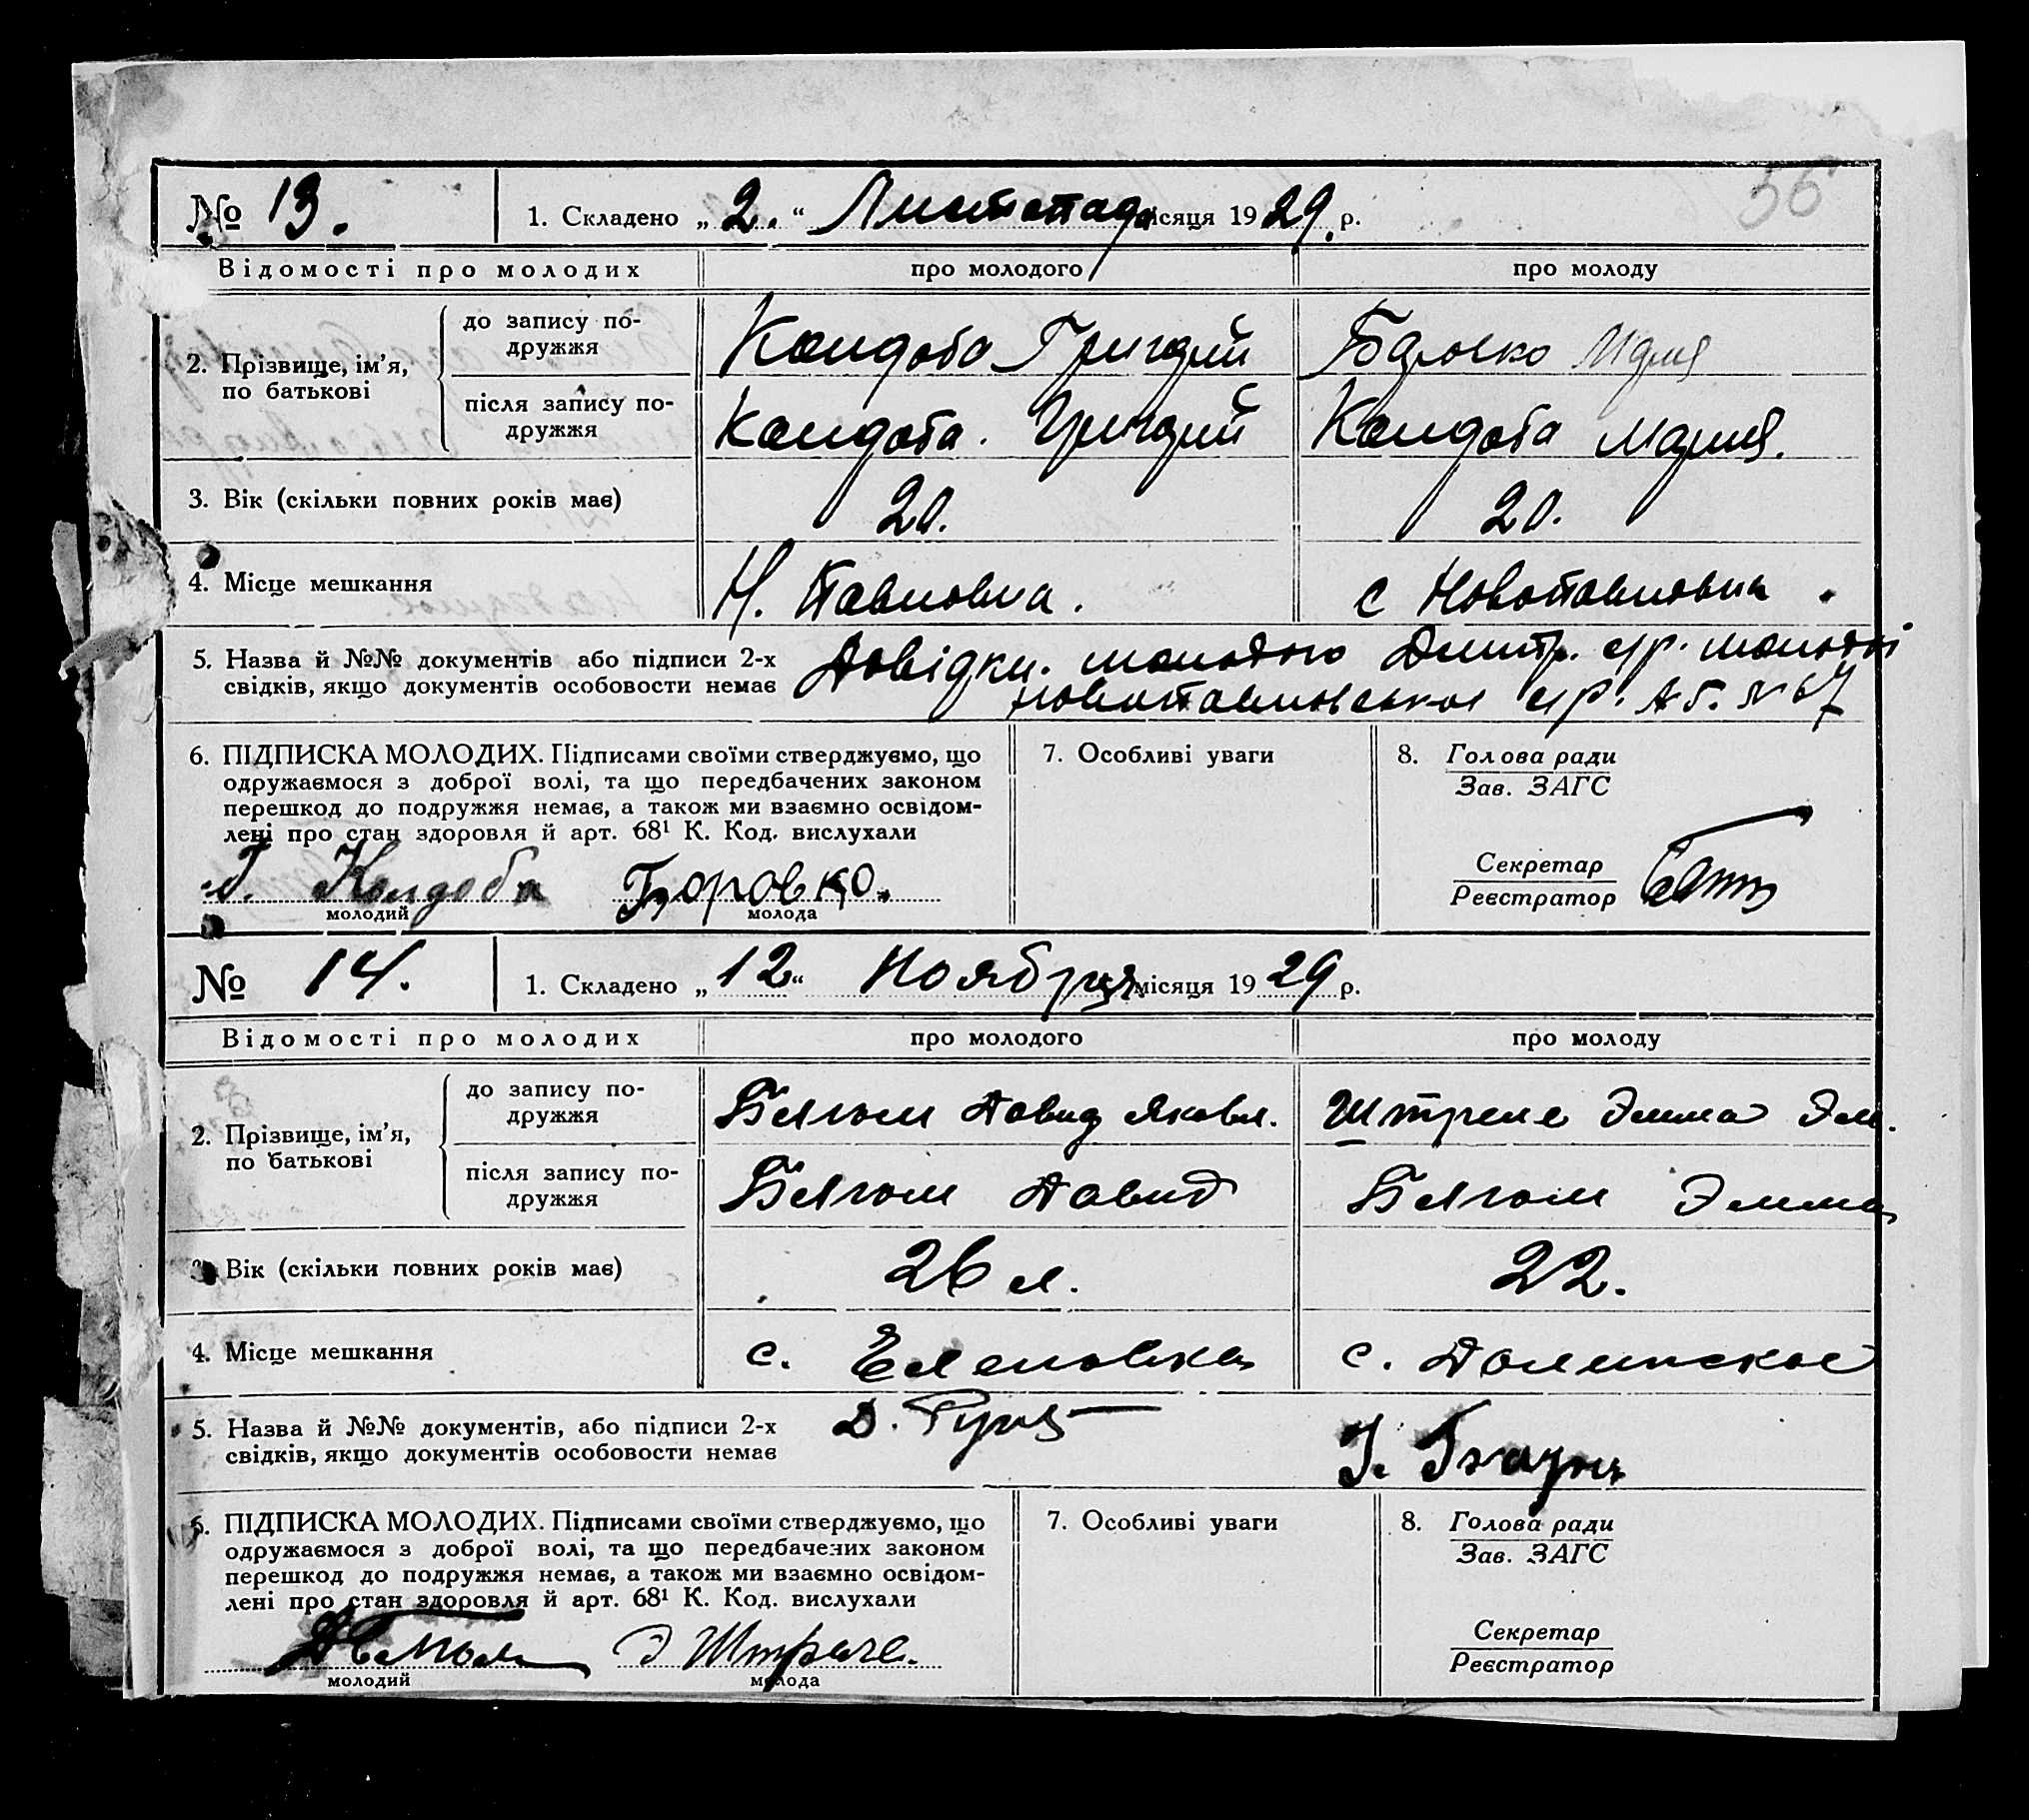 56
№ 13. 1. Складено „2.“ Листопада місяця 1929. р.
Відомості про молодих про молодого про молоду
2. Прізвище, ім’я, по батькові
до запису подружжя Колдоба Григорій Боровко Мария
після запису подружжя Колдоба. Григорій Колдоба Мария.
3. Вік (скільки повних років має) 20. 20.
4. Місце мешкання Н. Павловка. с Новопавловка.
5. Назва й №№ документів або підписи 2-х Довідки. молодого Дмитр. с/р. молодої
свідків, якщо документів особовости немає новопавловськое с/р.
6. ПІДПИСКА МОЛОДИХ. Підписами своїми стверджуємо, що 7. Особливі уваги 8. Голова ради
одружаємося з доброї волі, та що передбачених законом Зав. ЗАГС
перешкод до подружжя немає, а також ми взаємно освідом-
лені про стан здоровля й арт. 68¹ К. Код. вислухали
Секретар
Г. Колдоба Боровко. Реєстратор
молодий молода
№ 14. 1. Складено „12“ Ноября місяця 1929 р.
Відомості про молодих про молодого про молоду
2. Прізвище, ім’я, по батькові
до запису подружжя Давид Яковл. Эмма Эм.
після запису подружжя Давид Эмма
3. Вік (скільки повних років має) 26 л. 22.
4. Місце мешкання с. Еленовка с. Долинское
5. Назва й №№ документів, або підписи 2-х Д.
свідків, якщо документів особовости немає
6. ПІДПИСКА МОЛОДИХ. Підписами своїми стверджуємо, що 7. Особливі уваги 8. Голова ради
одружаємося з доброї волі, та що передбачених законом Зав. ЗАГС
перешкод до подружжя немає, а також ми взаємно освідом-
лені про стан здоровля й арт. 68¹ К. Код. вислухали
Секретар
Э Реєстратор
молодий молода